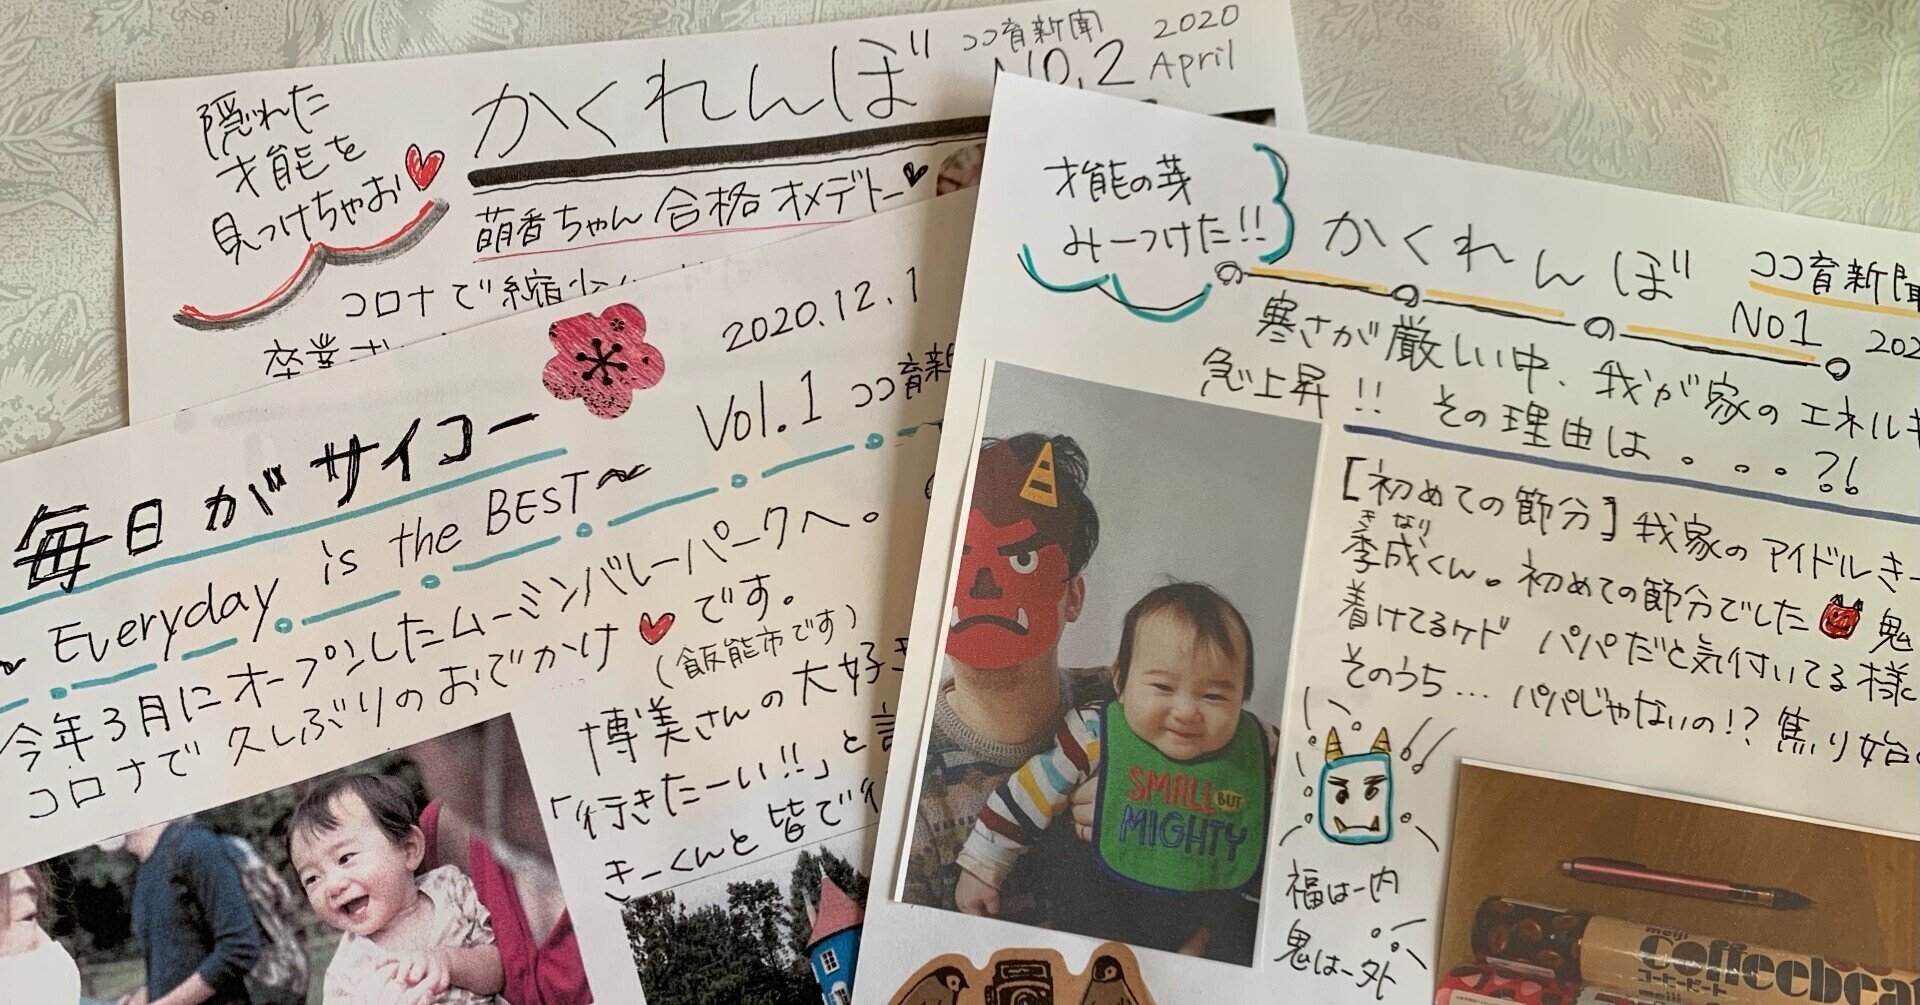 隠れた
才能を
見つけちゃお
かくれんぼ
ココ育新聞
NO.2
2020
April
萌香ちゃん合格オメデトー
コロナで縮小
卒業
毎日がサイコー
2020.12.1
Vol.1 ココ育新
~ Everyday is the BEST~
今年3月にオープンしたムーミンバレーパークへ。
コロナで久しぶりのおでかけ♥です。
(飯能市です)
博美さんの大好き
「行きたーい!!」と
きーくんと皆で行
才能の芽
みーつけた!!
かくれんぼ
ココ育新聞
No1
202
寒さが厳しい中、我が家のエネルギ
急上昇!! その理由は。。。?!
[初めての節分]我家のアイドルきー
きなり
季成くん。初めての節分でした 鬼
着けてるケド パパだと気付いてる様
そのうち... パパじゃないの!? 焦り始
SMALL BUT
MIGHTY
福はー内
鬼はー外
meiji
Coffeebeat
コーヒービート
meiji